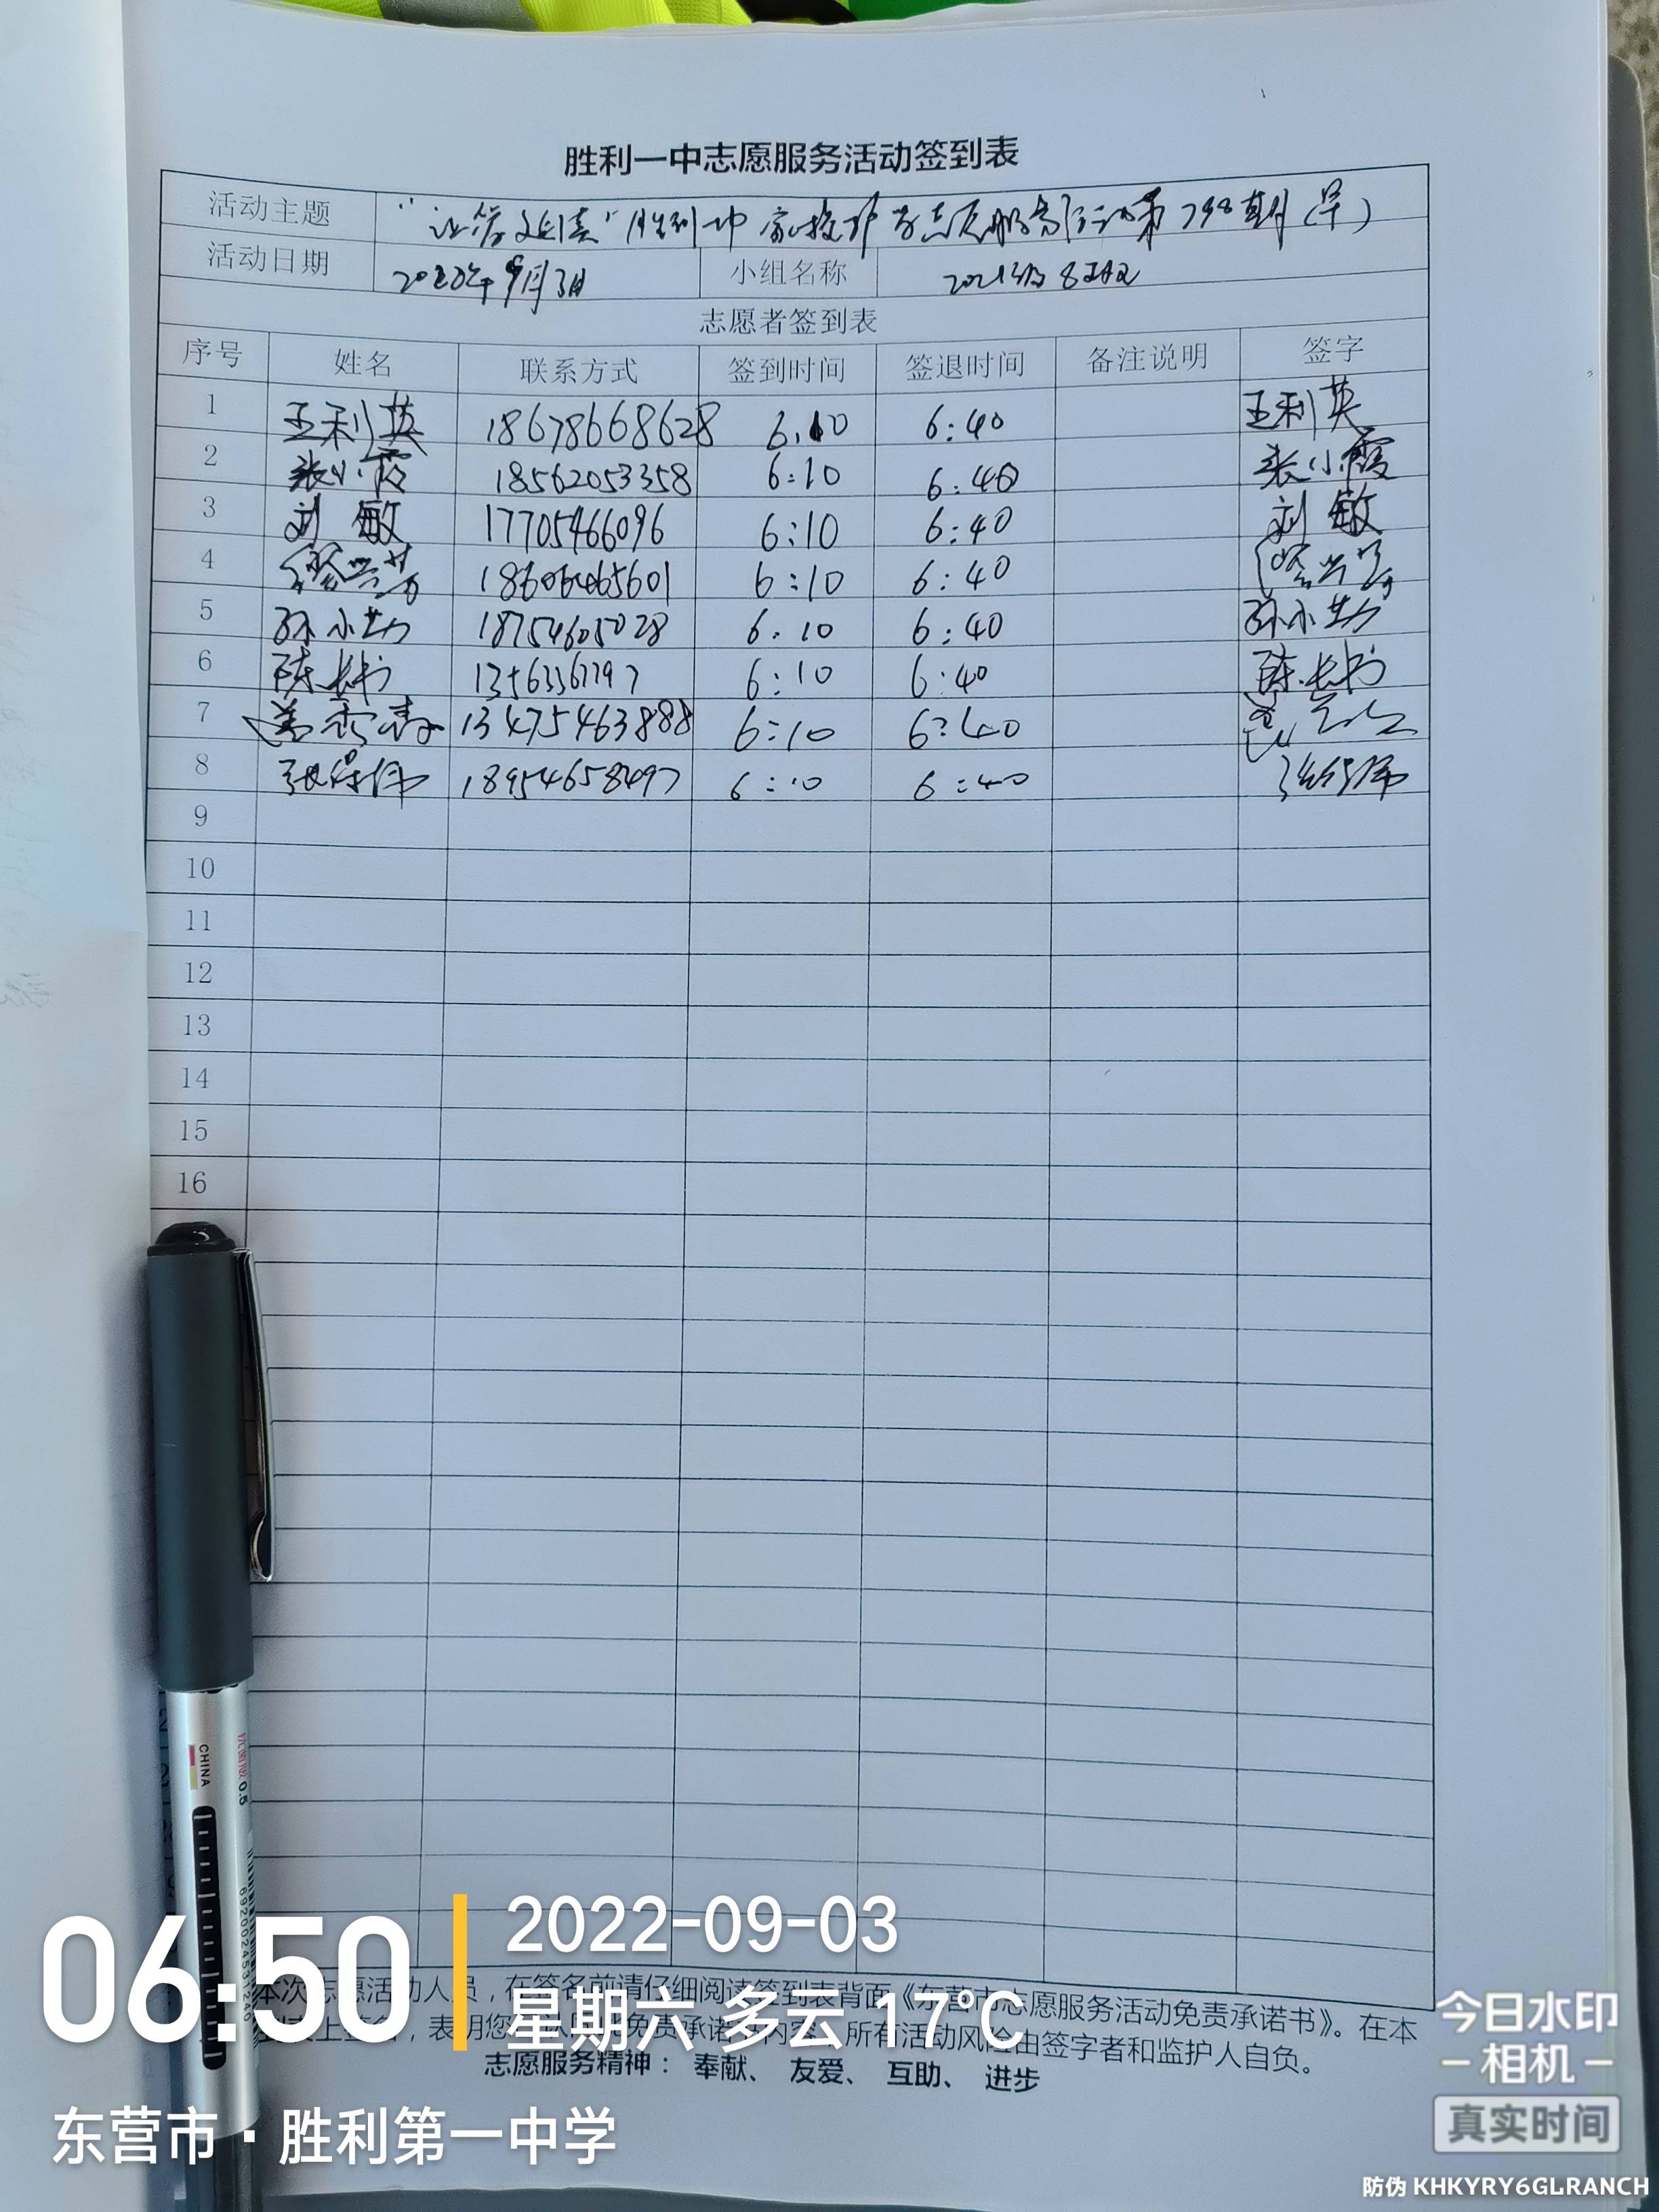 胜利一中志愿服务活动签到表
活动主题 " 让 爱 延续" 胜利一中 家校护 志愿服务行动第798期(早)
活动日期 2022年9月3日 小组名称 2021级8班
志愿者签到表
序号 姓名 联系方式 签到时间 签退时间 备注说明 签字
1 王利英 18678668628 6:10 6:40 王利英
2 张小霞 18562053358 6:10 6:40 张小霞
3 刘敏 17705466096 6:10 6:40 刘敏
4 缪兰芳 18606465601 6:10 6:40
5 孙小勤 18754605028 6:10 6:40 孙小勤
6 陈长书 13563367797 6:10 6:40 陈长书
7 13475463888 6:10 6:40
8 18954658497 6:10 6:40
9
10
11
12
13
14
15
16
本次志愿活动人员，在签名前请仔细阅读签到表背面《东营市志愿服务活动免责承诺书》。在本
表明您 免责承诺 内容 所有活动风险由签字者和监护人自负。
志愿服务精神： 奉献、 友爱、 互助、 进步
CHINA
0.5
6920024531240
06:50
2022-09-03
星期六 多云 17°C
东营市·胜利第一中学
今日水印
相机
真实时间
防伪 KHKYRY6GLRANCH